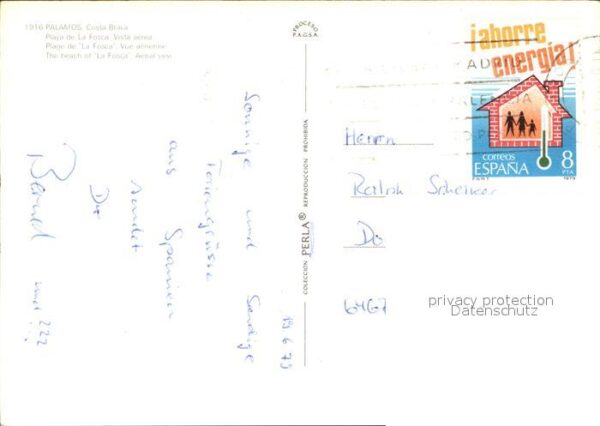 1916 PALAMOS. Costa Brava
Playa de La Fosca. Vista aérea
Plage de "La Fosca". Vue aérienne
The beach of "La Fosca". Aerial view
PROCESO
P.A.G.S.A.
COLECCION PERLA® REPRODUCCION PROHIBIDA
¡ahorre
energía!
CORREOS
ESPAÑA
8
PTA
1979
Sonnige und
aus Spanien
sendet
Dir
Bernd
Herrn
Ralph
Do
6467
privacy protection
Datenschutz